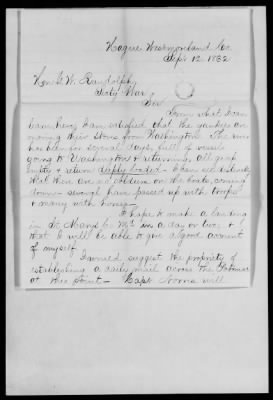 Hague Westmoreland Co.
Sept 12. 1862
Hon G. W. Randolph
Secty War,
Sir
From what I can
learn, here, I am satisfied that the yankees are
moving their stores from Washington. The river
has been for several days, full of vessels
going to Washington & returning, all go up
empty & return deeply loaded - I can see distinctly
that there are no soldiers on the boats coming
down - several have passed up with troops
& many with horses -
I hope to make a landing
in St. Marys Co Md in a day or two, &
that I will be able to give a good account
of myself.
I would suggest the propriety of
establishing a daily mail across the Potomac
at this point - Capt will